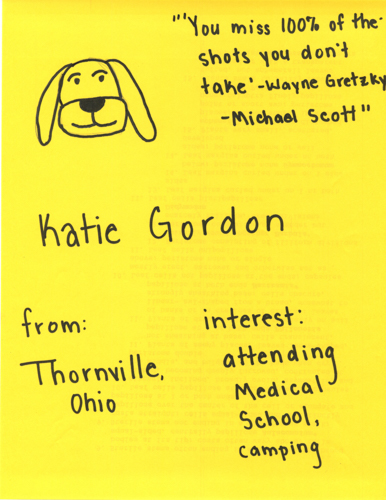 "'You miss 100% of the
shots you don't
take'-Wayne Gretzky
-Michael Scott"
Katie Gordon
from:
Thornville,
Ohio
interest:
attending
Medical
School,
camping